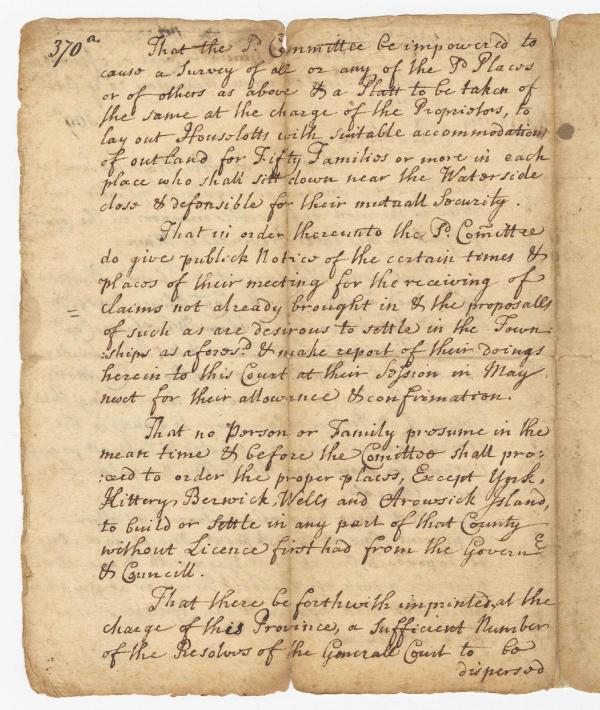 370a
That the Sd. Committee be impowered to
cause a Survey of all or any of the Sd Places
or of others as above & a Platt to be taken of
the same at the charge of the Proprietors, to
lay out Houselotts with suitable accommodations
of outland for Fifty Families or more in each
place who shall sitt down near the Waterside
close & defensible for their mutuall Security.
That in order thereunto the Sd. Comittee
do give publick Notice of the certain times &
places of their meeting for the receiving of
claims not already brought in & the proposalls
of such as are desirous to settle in the Town:
:ships as aforesd. & make report of their doings
herein to this Court at their Session in May
next for their allowance & confirmation.
That no Person or Family presume in the
mean time & before the Comittee shall pro:
:ceed to order the proper places, Except York,
Kittery, Berwick, Wells and Arowsick Island,
to build or settle in any part of that County
without Licence first had from the Governr.
& Councill.
That there be forthwith imprinted, at the
charge of this Province, a sufficient Number
of the Resolves of the Generall Court to be
dispersed